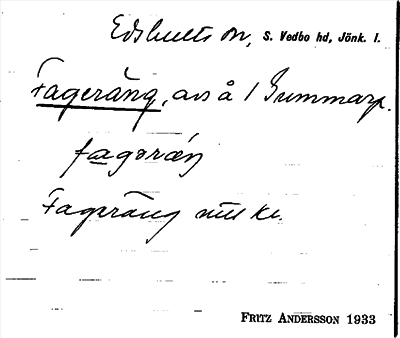 Edshults sn, S. Vedbo hd, Jönk. l.
Fageräng, avs å 1 Gummarp.
fagəräŋ
Fageräng mtl kl.
FRITZ ANDERSSON 1933